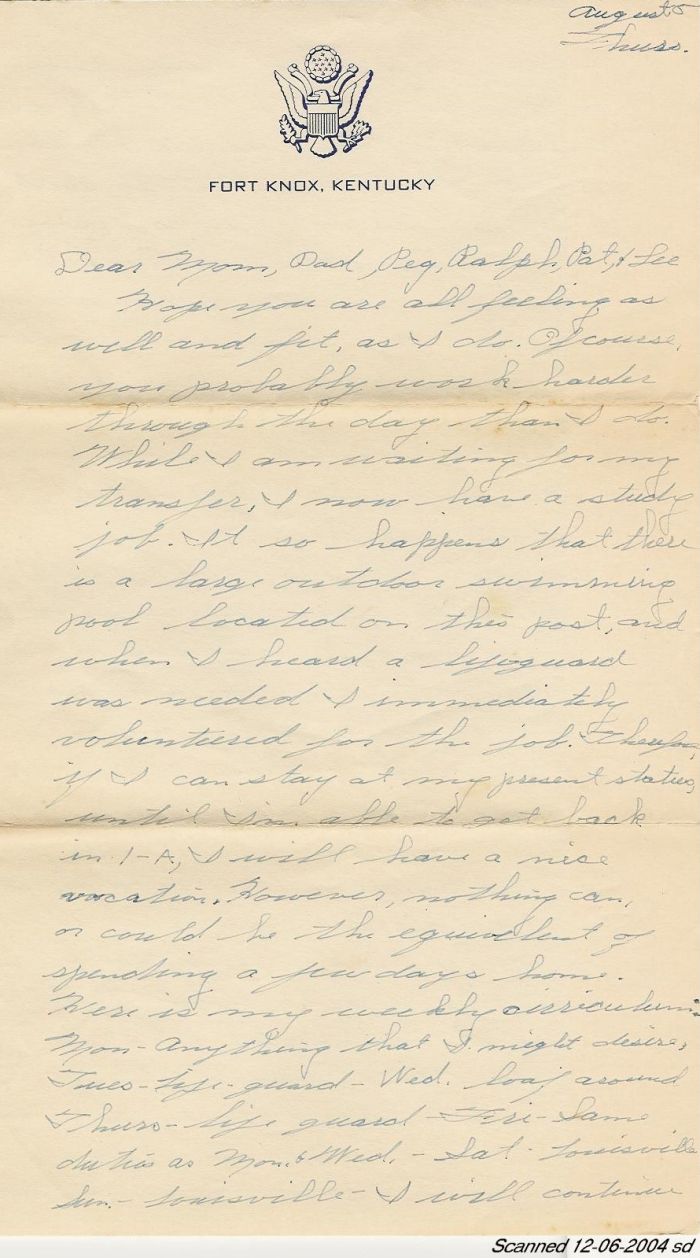 August 5
Thurs.
FORT KNOX, KENTUCKY
Dear Mom, Dad, Peg, Ralph, Pat, & Lee
Hope you are all feeling as
well and fit, as I do. Of course,
you probably work harder
through the day than I do.
While I am waiting for my
transfer, I now have a study
job. It so happens that there
is a large outdoor swimming
pool located on this post, and
when I heard a lifeguard
was needed I immediately
volunteered for the job. Therefore,
if I can stay at my present status,
until I'm able to get back
in 1-A, I will have a nice
vacation. However, nothing can,
or could be the equivelent of
spending a few days home.
Here is my weekly cirriculum:
Mon - Anything that I might desire,
Tues - life - guard - Wed. loaf around
Thurs - life guard - Fri - Same
duties as Mon. & Wed. - Sat - Louisville
Sun. - Louisville - I will continue
Scanned 12-06-2004 sd